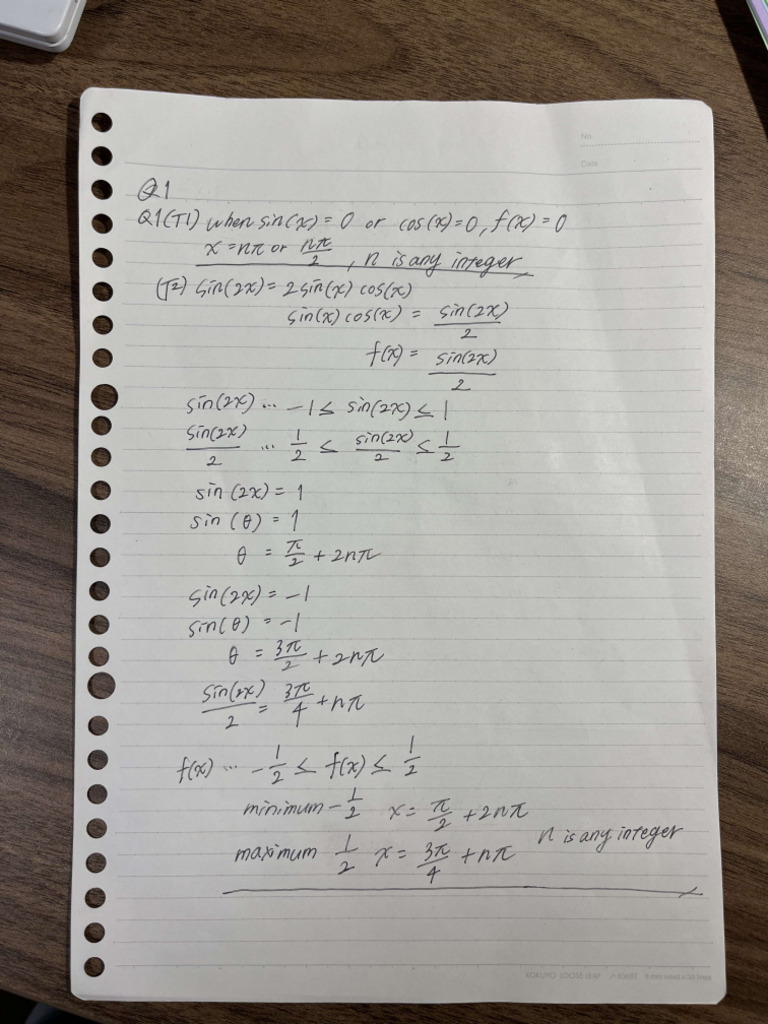 No.
Date
Q1
Q1(T1) when sin(x) = 0 or cos(x)=0, f(x) = 0
x = nπ or nπ/2, n is any integer
(T2) sin(2x) = 2sin(x) cos(x)
sin(x) cos(x) = sin(2x)/2
f(x) = sin(2x)/2
sin(2x) ... -1 ≤ sin(2x) ≤ 1
sin(2x)/2 ... 1/2 ≤ sin(2x)/2 ≤ 1/2
sin(2x) = 1
sin(θ) = 1
θ = π/2 + 2nπ
sin(2x) = -1
sin(θ) = -1
θ = 3π/2 + 2nπ
sin(2x)/2 = 3π/4 + nπ
f(x) ... -1/2 ≤ f(x) ≤ 1/2
minimum -1/2 x = π/2 + 2nπ
maximum 1/2 x = 3π/4 + nπ n is any integer